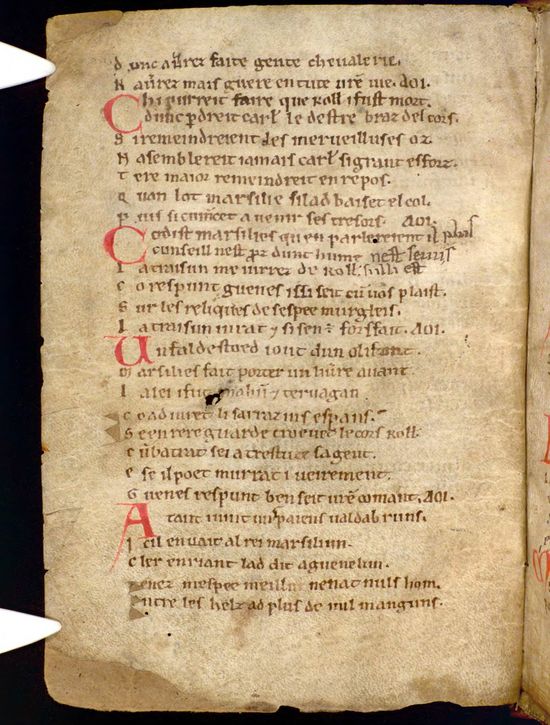 D unc aurez faite gente chevalerie.
N aurez mais guere en tute vr̄e vie. AOI.
C hi purreit faire que Roll̄ i fust mort.
D unc p̲dreit carl̄ le destre braz del cors.
S i remeindreient les merveilluses oz.
N asemblereit iamais carl̄ si grant esforz.
T ere maior remeindreit en repos.
Q uan lot marsilie si lad baiset el col.
P uis si cum̄cet a venir ses tresors. AOI.
C o dist marsilies quen parlereient il
conseill nest proz dunt hume
L a traisun me iurrez de Roll̄.
C o respunt guenes issi seit cū vos plaist.
S ur les reliques de sespee murgleis.
L a traisun iurat ⁊ si sen ē forsfait. AOI.
U n faldestoed i out dun olifant.
M arsilies fait porter un livre avant
L a lei i fut mahum ⁊ tervagan
C o ad iuret li sarrazins espans.
S e en rereguarde troevet le cors Roll̄
C ūbatrat sei a trestute sa gent.
E se il poet murrat i veirement.
G uenes respunt ben seit vr̄e comant. AOI.
A tant vint uns paiens valdabruns.
I cil en vait al rei marsiliun.
C ler en riant lad dit a guenelun.
T enez mespee meillur nen at nuls hom.
E ntre les helz ad plus de mil manguns.